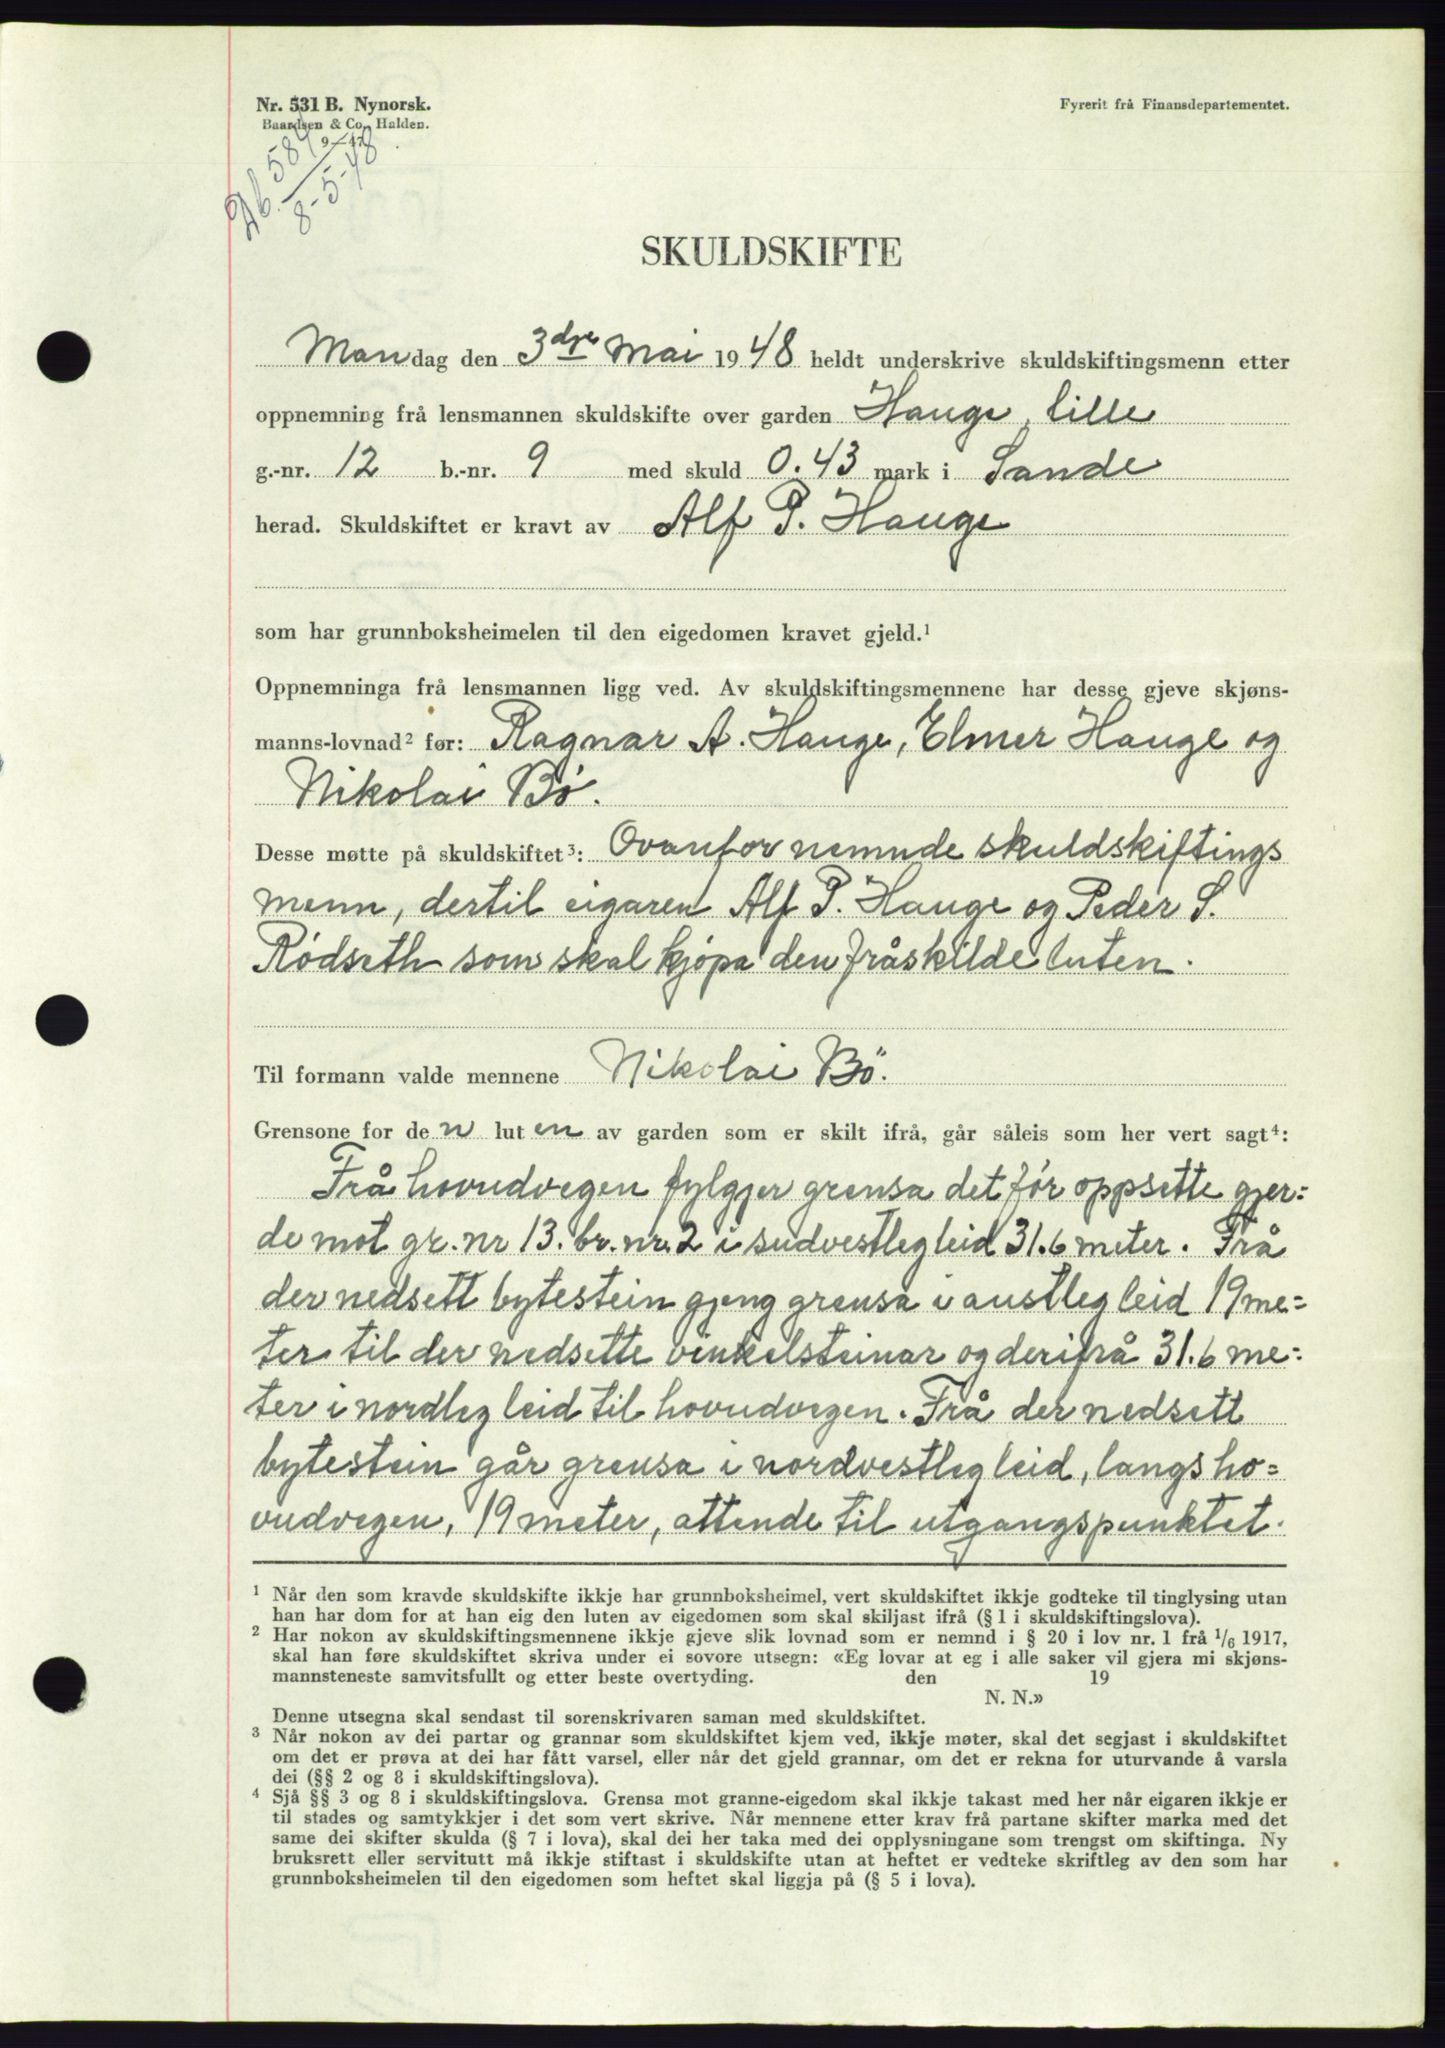 Nr. 531 B. Nynorsk.
Baardsen & Co, Halden.
9—47
Fyrerit frå Finansdepartementet.
584
8-5-48
SKULDSKIFTE
Mandag den 3dre Mai 1948 heldt underskrive skuldskiftingsmenn etter
oppnemning frå lensmannen skuldskifte over garden Hauge, lille
g.-nr. 12 b.-nr. 9 med skuld 0.43 mark i Sande
herad. Skuldskiftet er kravt av Alf P. Hauge
som har grunnboksheimelen til den eigedomen kravet gjeld.¹
Oppnemninga frå lensmannen ligg ved. Av skuldskiftingsmennene har desse gjeve skjøns-
manns-lovnad² før: Ragnar A. Hauge, Elmer Hauge og
Nikolai Bö.
Desse møtte på skuldskiftet³: Ovanfor nemnde skuldskiftings
menn, dertil eigaren Alf P. Hauge og Peder S.
Rödseth som skal kjöpa den fråskilde luten.
Til formann valde mennene Nikolai Bö.
Grensone for den luten av garden som er skilt ifrå, går såleis som her vert sagt⁴:
Frå hovudvegen fylgjer grensa det för oppsette gjer=
de mot gr. nr 13. br. nr. 2 i sudvestleg leid 31.6 meter. Frå
der nedsett bytestein gjeng grensa i austleg leid 19 me=
ter til der nedsette vinkelsteinar og derifrå 31.6 me=
ter i nordleg leid til hovudvegen. Frå der nedsett
bytestein går grensa i nordvestleg leid, langs ho=
vudvegen, 19 meter, attende til utgangspunktet.
¹ Når den som kravde skuldskifte ikkje har grunnboksheimel, vert skuldskiftet ikkje godteke til tinglysing utan
han har dom for at han eig den luten av eigedomen som skal skiljast ifrå (§ 1 i skuldskiftingslova).
² Har nokon av skuldskiftingsmennene ikkje gjeve slik lovnad som er nemnd i § 20 i lov nr. 1 frå 1/6 1917,
skal han føre skuldskiftet skriva under ei sovore utsegn: «Eg lovar at eg i alle saker vil gjera mi skjøns-
mannsteneste samvitsfullt og etter beste overtyding. den 19
N. N.»
Denne utsegna skal sendast til sorenskrivaren saman med skuldskiftet.
³ Når nokon av dei partar og grannar som skuldskiftet kjem ved, ikkje møter, skal det segjast i skuldskiftet
om det er prøva at dei har fått varsel, eller når det gjeld grannar, om det er rekna for uturvande å varsla
dei (§§ 2 og 8 i skuldskiftingslova).
⁴ Sjå §§ 3 og 8 i skuldskiftingslova. Grensa mot granne-eigedom skal ikkje takast med her når eigaren ikkje er
til stades og samtykkjer i det som vert skrive. Når mennene etter krav frå partane skifter marka med det
same dei skifter skulda (§ 7 i lova), skal dei her taka med dei opplysningane som trengst om skiftinga. Ny
bruksrett eller servitutt må ikkje stiftast i skuldskifte utan at heftet er vedteke skriftleg av den som har
grunnboksheimelen til den eigedomen som heftet skal liggja på (§ 5 i lova).